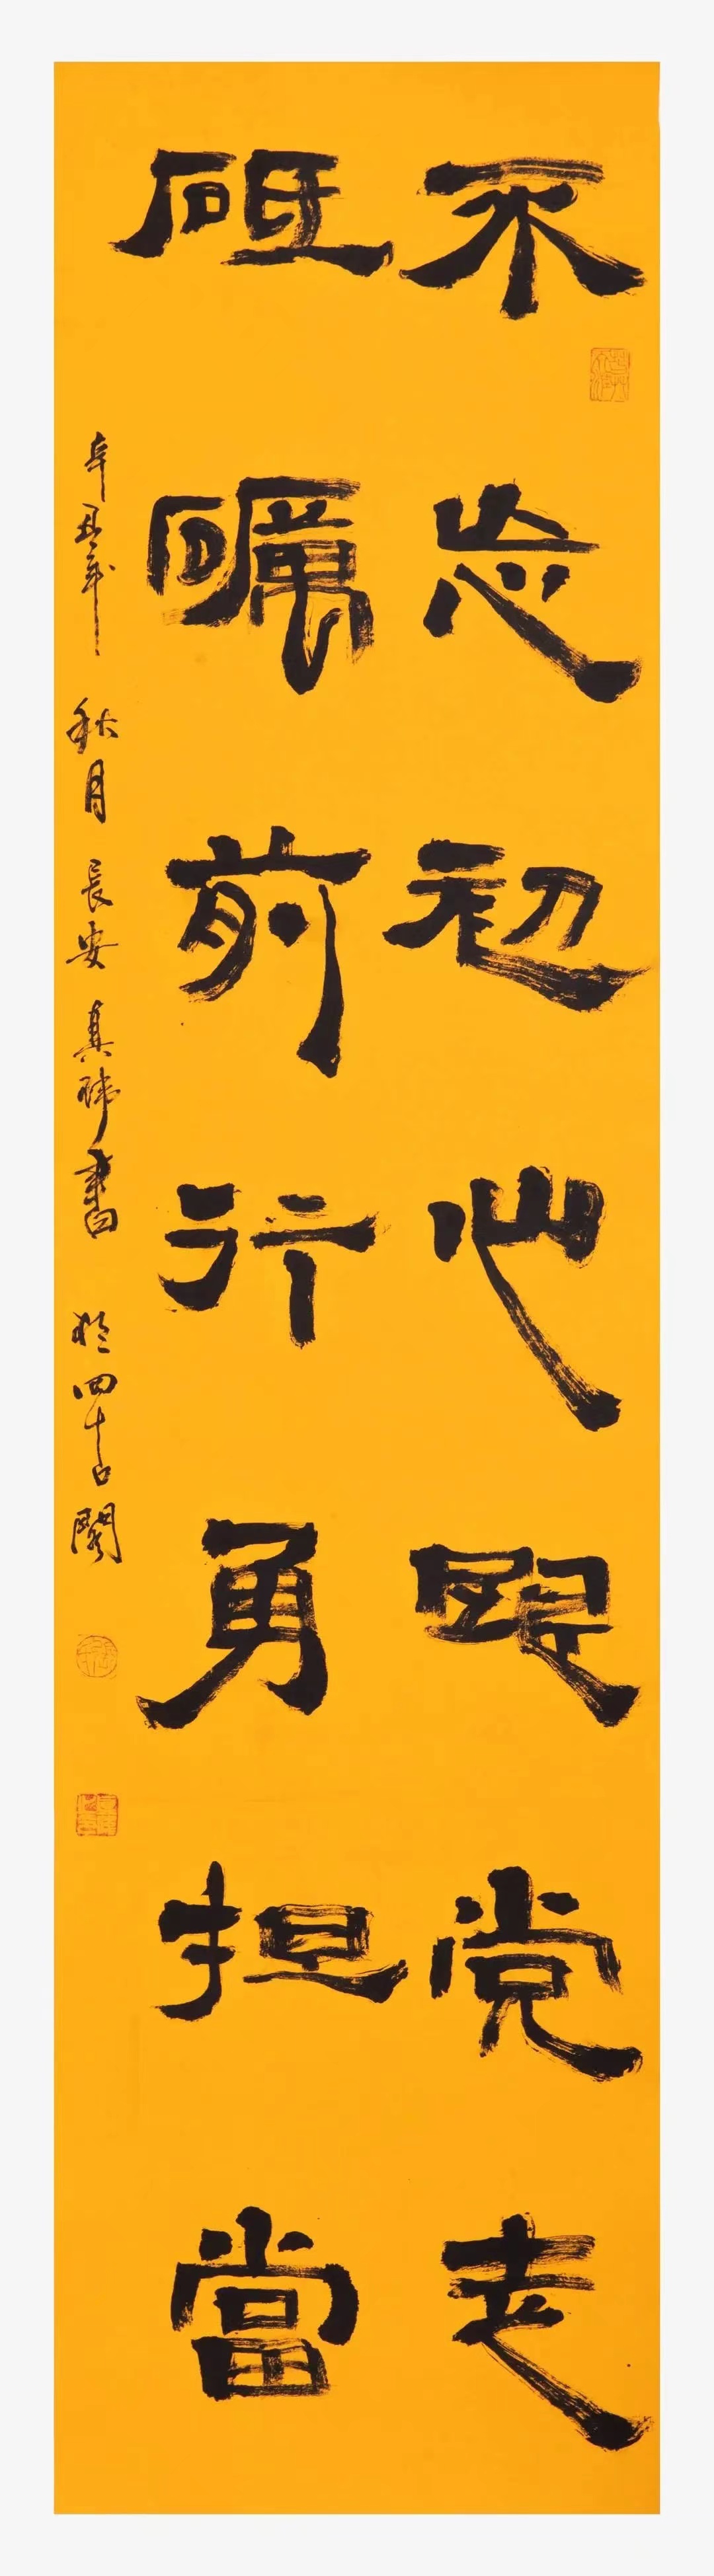 不忘初心跟党走
砥礪前行勇担當
辛丑年秋月長安真書於四閣